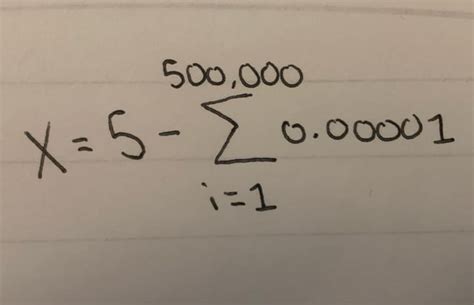 500,000
X = 5 - ∑ 0.00001
i=1